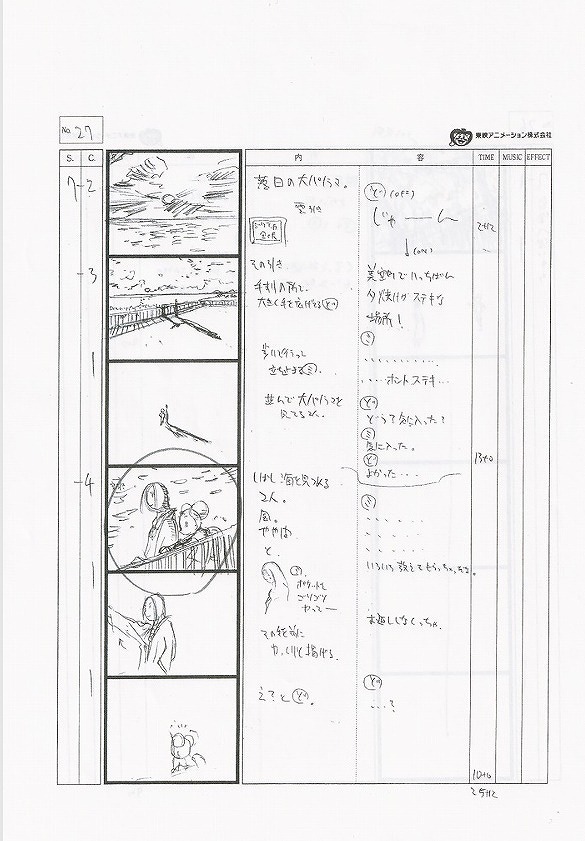 No. 27
東映アニメーション株式会社
S.
C.
内
容
TIME
MUSIC
EFFECT
7-2
落日の大パノラマ。
雲引き
ど (OFF)
じゃーん
↓(ON)
2+12
-3
その引き
手すりの前で、
大きく手を広げるど
美空町でいっちばん
夕焼けがステキな
場所!
歩いて行って
立ち止まるミ.
ミ
、、、、、、、、、、
・・・・・ホントステキ・・・
並んで大パノラマを
見てる2人。
ど
どう?気に入った?
ミ
気に入った。
ど
よかった・・・
13+0
-4
しばし海を見つめる
2人。
風。
ややあって
と、
ミ
いろいろ教えてもらっちゃったな。
ミ、
ポケットを
ゴソゴソ
やって―
お返ししなくっちゃ。
その手を前に
ゆっくりと掲げる。
え?とど。
ど
・・・?
10+0
25+12